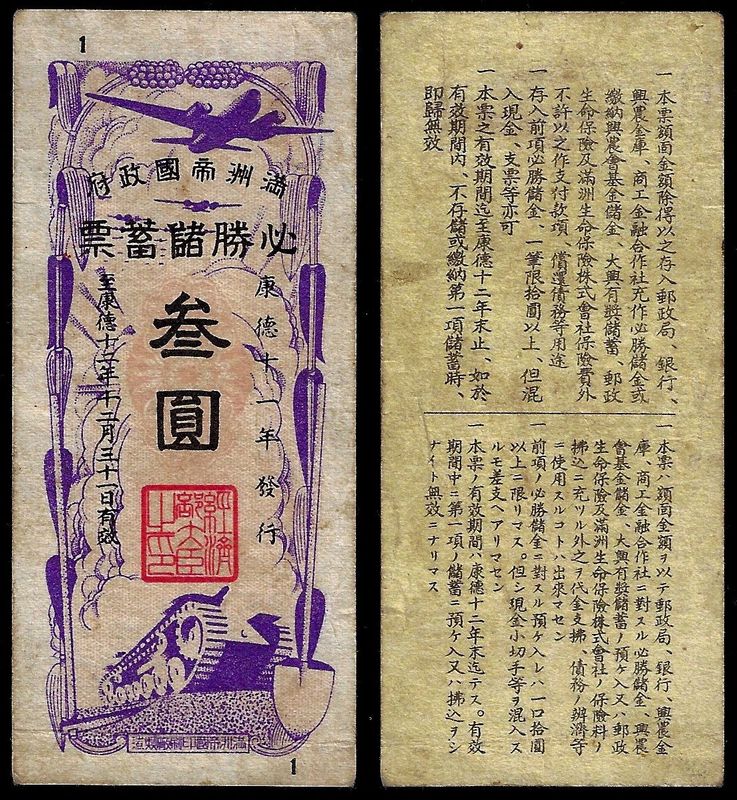 1
滿洲帝國政府
必勝儲蓄票
康德十一年發行
叁圓
至康德十二年十二月三十一日有效
經濟
部大臣
之印
滿洲帝國印刷廠製造
1
一 本票額面金額除得以之存入郵政局、銀行、
興農金庫、商工金融合作社充作必勝儲金或
繳納興農會基金儲金、大興有獎儲蓄、郵政
生命保險及滿洲生命保險株式會社保險費外
不許以之作支付款項、償還債務等用途
一 存入前項必勝儲金、一筆限拾圓以上、但混
入現金、支票等亦可
一 本票之有效期間迄至康德十二年末止、如於
有效期間内、不存儲或繳納第一項儲蓄時、
即歸無效
一 本票ハ額面金額ヲ以テ郵政局、銀行、興農金
庫、商工金融合作社ニ對スル必勝儲金、興農
會基金儲金、大興有獎儲蓄ノ預ケ入又ハ郵政
生命保險及滿洲生命保險株式會社ノ保險料ノ
拂込ニ充ツル外之ヲ代金支拂、債務ノ辨濟等
ニ使用スルコトハ出來マセン
一 前項ノ必勝儲金ニ對スル預ケ入レハ一口拾圓
以上ニ限リマス。但シ現金小切手等ヲ混入ス
ルモ差支ヘアリマセン
一 本票ノ有效期間ハ康德十二年末迄テス。有效
期間中ニ第一項ノ儲蓄ニ預ケ入又ハ拂込ヲシ
ナイト無效ニナリマス